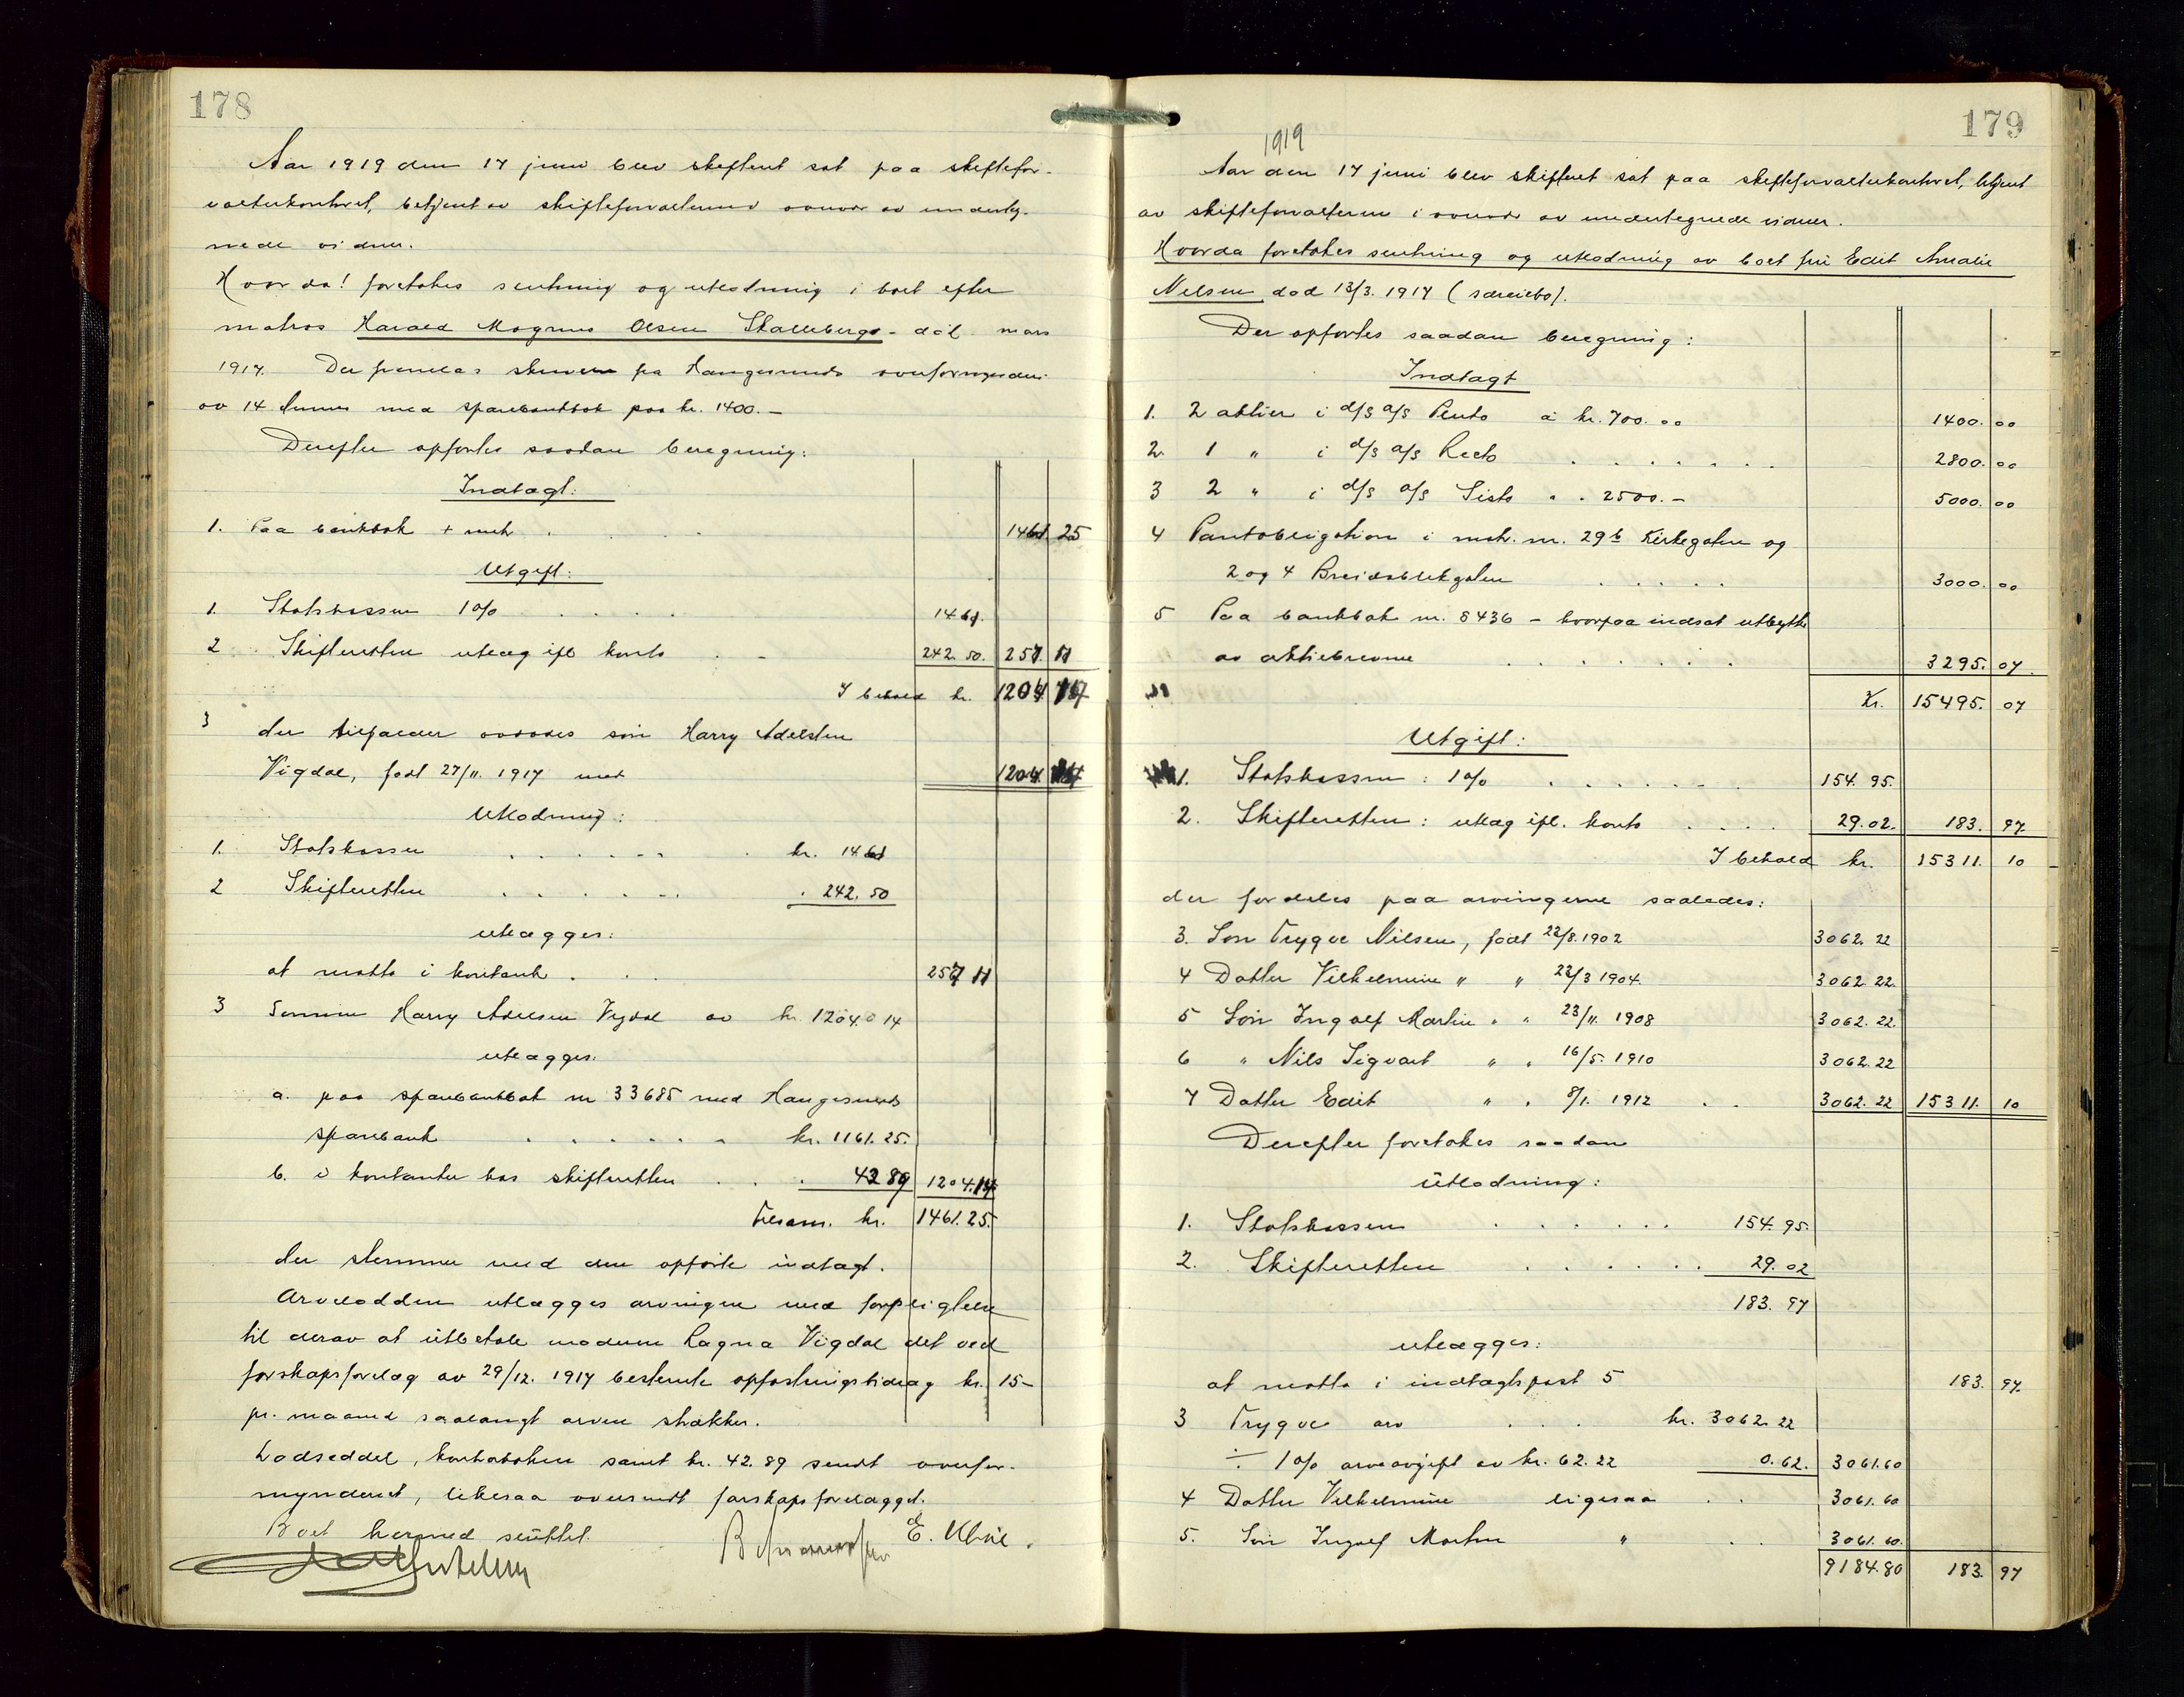 178
Aar 1919 den 17 juni blev skifteret sat paa skiftefor-
valterkontoret, betjent av skifteforvalteren i overvær av underteg-
nede vidner.
Hvorda! foretokes slutning og utlodning i boet efter
matros Harald Magnus Olsen Skallebergs - død mars
1917. Der fremlas skrivelse fra Haugesunds overformynderi
av 14 dennes med sparebankbok paa kr. 1400.-
Derefter opførtes saadan beregning:
Indtægt:
1. Paa bankbok + rente . . . 1461 25
Utgift:
1. Statskassen 1 o/o . . . . 14 61.
2 Skifteretten utlæg ifl konto . . 242. 50. 257 11
I behold kr. 1204 14
3 der tilfalder avdødes søn Harry Adelsten
Vigdal, født 27/11. 1917 med 1204. 14
Utlodning:
1. Statskassen . . . . . kr. 14 61
2 Skifteretten . . . . . . 242. 50
utlægges:
at motta i kontant . . . 257 11
3 Sønnen Harry Adelsen Vigdal av kr. 1204. 14
utlægges:
a. paa sparebankbok nr 33685 med Haugesunds
sparebank . . . . . . kr. 1161. 25.
b. i kontanter hos skifteretten . . . 42 89 1204.14
Tilsam. kr. 1461. 25.
der stemmer med den opførte indtægt.
Arvelodden utlægges arvingen med forpligtelse
til derav at utbetale moderen Ragna Vigdal det ved
farskapsforelæg av 29/12. 1917 bestemte opfostringsbidrag kr. 15-
pr. maaned saalangt arven strækker.
Lodseddel, kontobøken samt kr. 42. 89 sendt overfor-
mynderiet, likesaa oversendt farskapsforelægget.
Boet hermed sluttet.
E. Ulvik.
179
1919
Aar den 17 juni blev skifteret sat paa skifteforvalterkontoret, betjent
av skifteforvalteren i overvær av undertegnede vidner.
Hvorda foretokes slutning og utlodning av boet fru Edit Amalie
Nilsen død 13/3. 1917 (særeiebo).
Der opførtes saadan beregning:
Indtægt
1. 2 aktier i d/s a/s Pento à kr. 700. 00 1400. 00
2. 1 " i d/s a/s Recto . . . . . . . 2800. 00
3 2 " i d/s a/s Sisto " . 2500. - 5000. 00
4 Pantobligation i matr. nr. 29b Kirkegaten og
2 og 4 Breidablikgaten . . . . . 3000. 00
5 Paa bankbok nr. 8436 - hvorpaa indsat utbytte
av aktiebrevene . . . . . . . 3295. 07.
Kr. 15495. 07
Utgift:
1. Statskassen: 1 o/o . . . . . . . 154. 95.
2. Skifteretten: utlæg ifl. konto . . . . 29. 02. 183. 97.
I behold kr. 15311. 10
der fordeles paa arvingerne saaledes:
3. Søn Trygve Nilsen, født 22/8. 1902 3062. 22
4 Datter Vilhelmine " " 22/3 1904. 3062. 22.
5 Søn Ingolf Martin " " 23/11. 1908 3062. 22.
6 " Nils Sigvart " " 16/5. 1910 3062. 22
7 Datter Edit " . 8/1. 1912 . . 3062. 22 15311. 10
Derefter foretokes saadan
Utlodning:
1. Statskassen . . . . . . 154. 95.
2. Skifteretten . . . . . . 29. 02
183. 97
utlægges:
at motta i indtægtspost 5 183. 97.
3 Trygve arv . . . kr. 3062. 22
÷ 1 o/o arveavgift av kr. 62. 22 0. 62. 3061. 60
4 Datter Vilhelmine ligesaa . . 3061. 60
5. Søn Ingolf Martin " . . 3061. 60.
9184. 80 183. 97